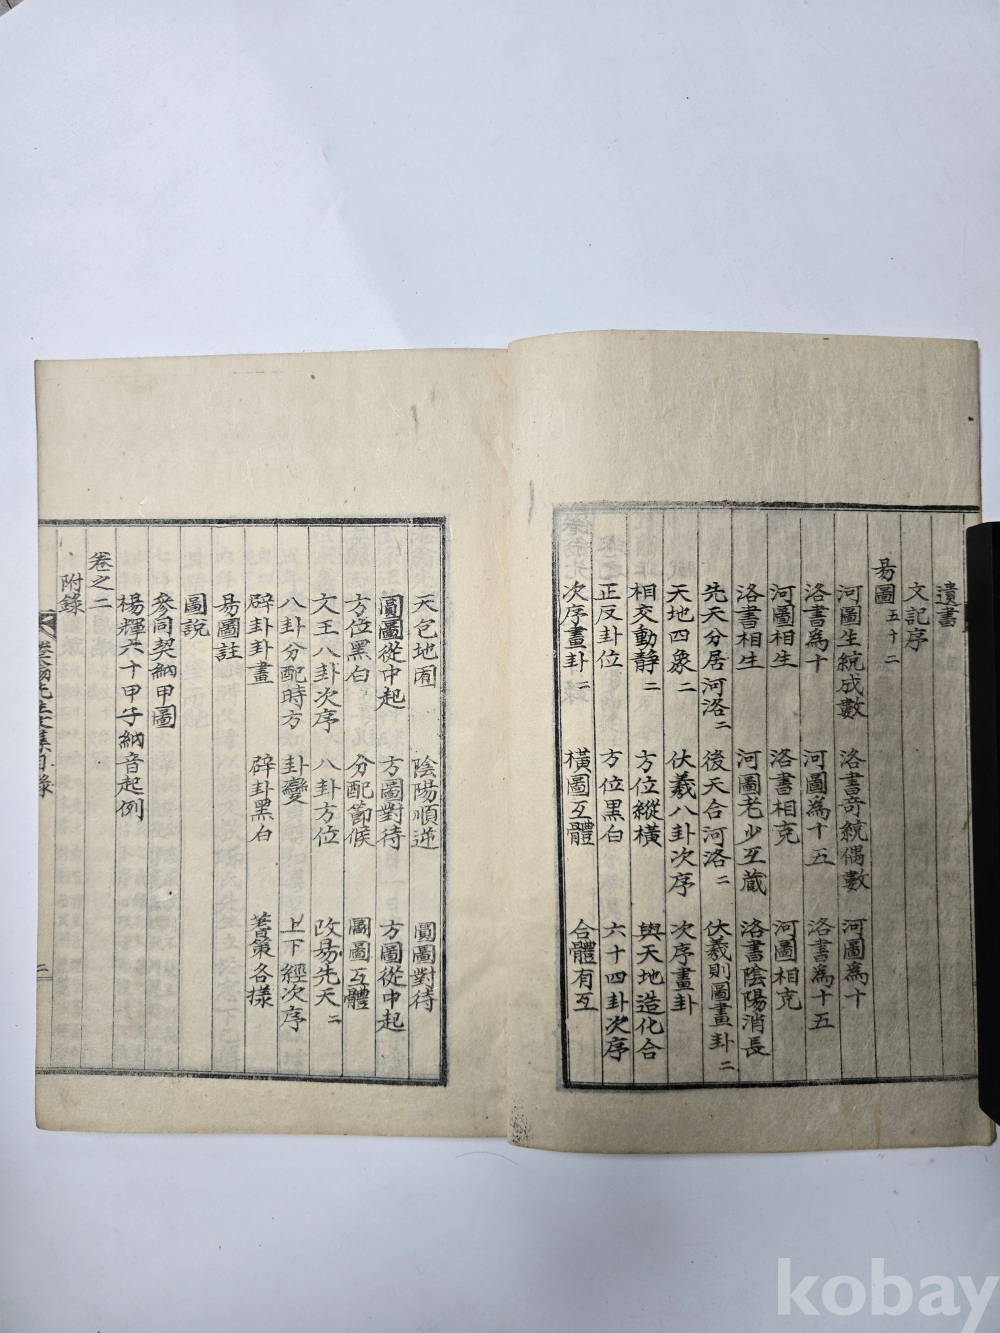 遺書
文記序
易圖 五十二
河圖生統成數 洛書奇統偶數 河圖為十
洛書為十 河圖為十五 洛書為十五
河圖相生 洛書相克 河圖相克
洛書相生 河圖老少互藏 洛書陰陽消長
先天分居河洛 二 後天合河洛 二 伏羲則圖畫卦 二
天地四象 二 伏羲八卦次序 次序畫卦
相交動靜 二 方位縱橫 與天地造化合
正反卦位 方位黑白 六十四卦次序
次序畫卦 二 橫圖互體 合體有互
天包地圖 陰陽順逆 圓圖對待
圓圖從中起 方圖對待 方圖從中起
方位黑白 分配節候 圓圖互體
文王八卦次序 八卦方位 改易先天 二
八卦分配時方 卦變 上下經次序
辟卦卦畫 辟卦黑白 蓍策各樣
易圖註
圖說
參同契納甲圖
楊輝六十甲子納音起例
卷之二
附錄
先生文集目錄
二
kobay